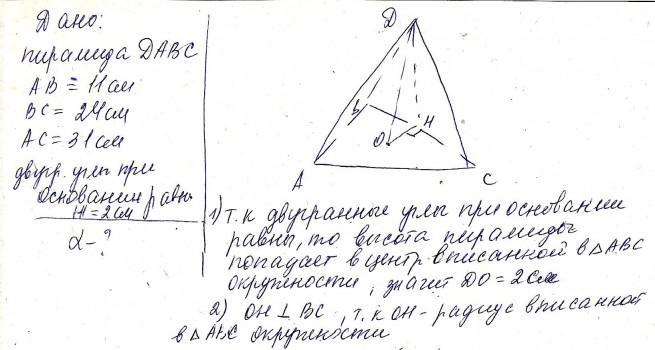 Дано:
пирамида DABC
AB = 11см
BC = 24см
AC = 31см
двугр. углы при
основании равны
H = 2см
α - ?
D
B
O
H
A
C
1) т.к двугранные углы при основании
равны, то высота пирамиды
попадает в центр вписанной в △ABC
окружности, значит DO = 2см
2) OH ⊥ BC, т.к OH - радиус вписанной
в △ABC окружности